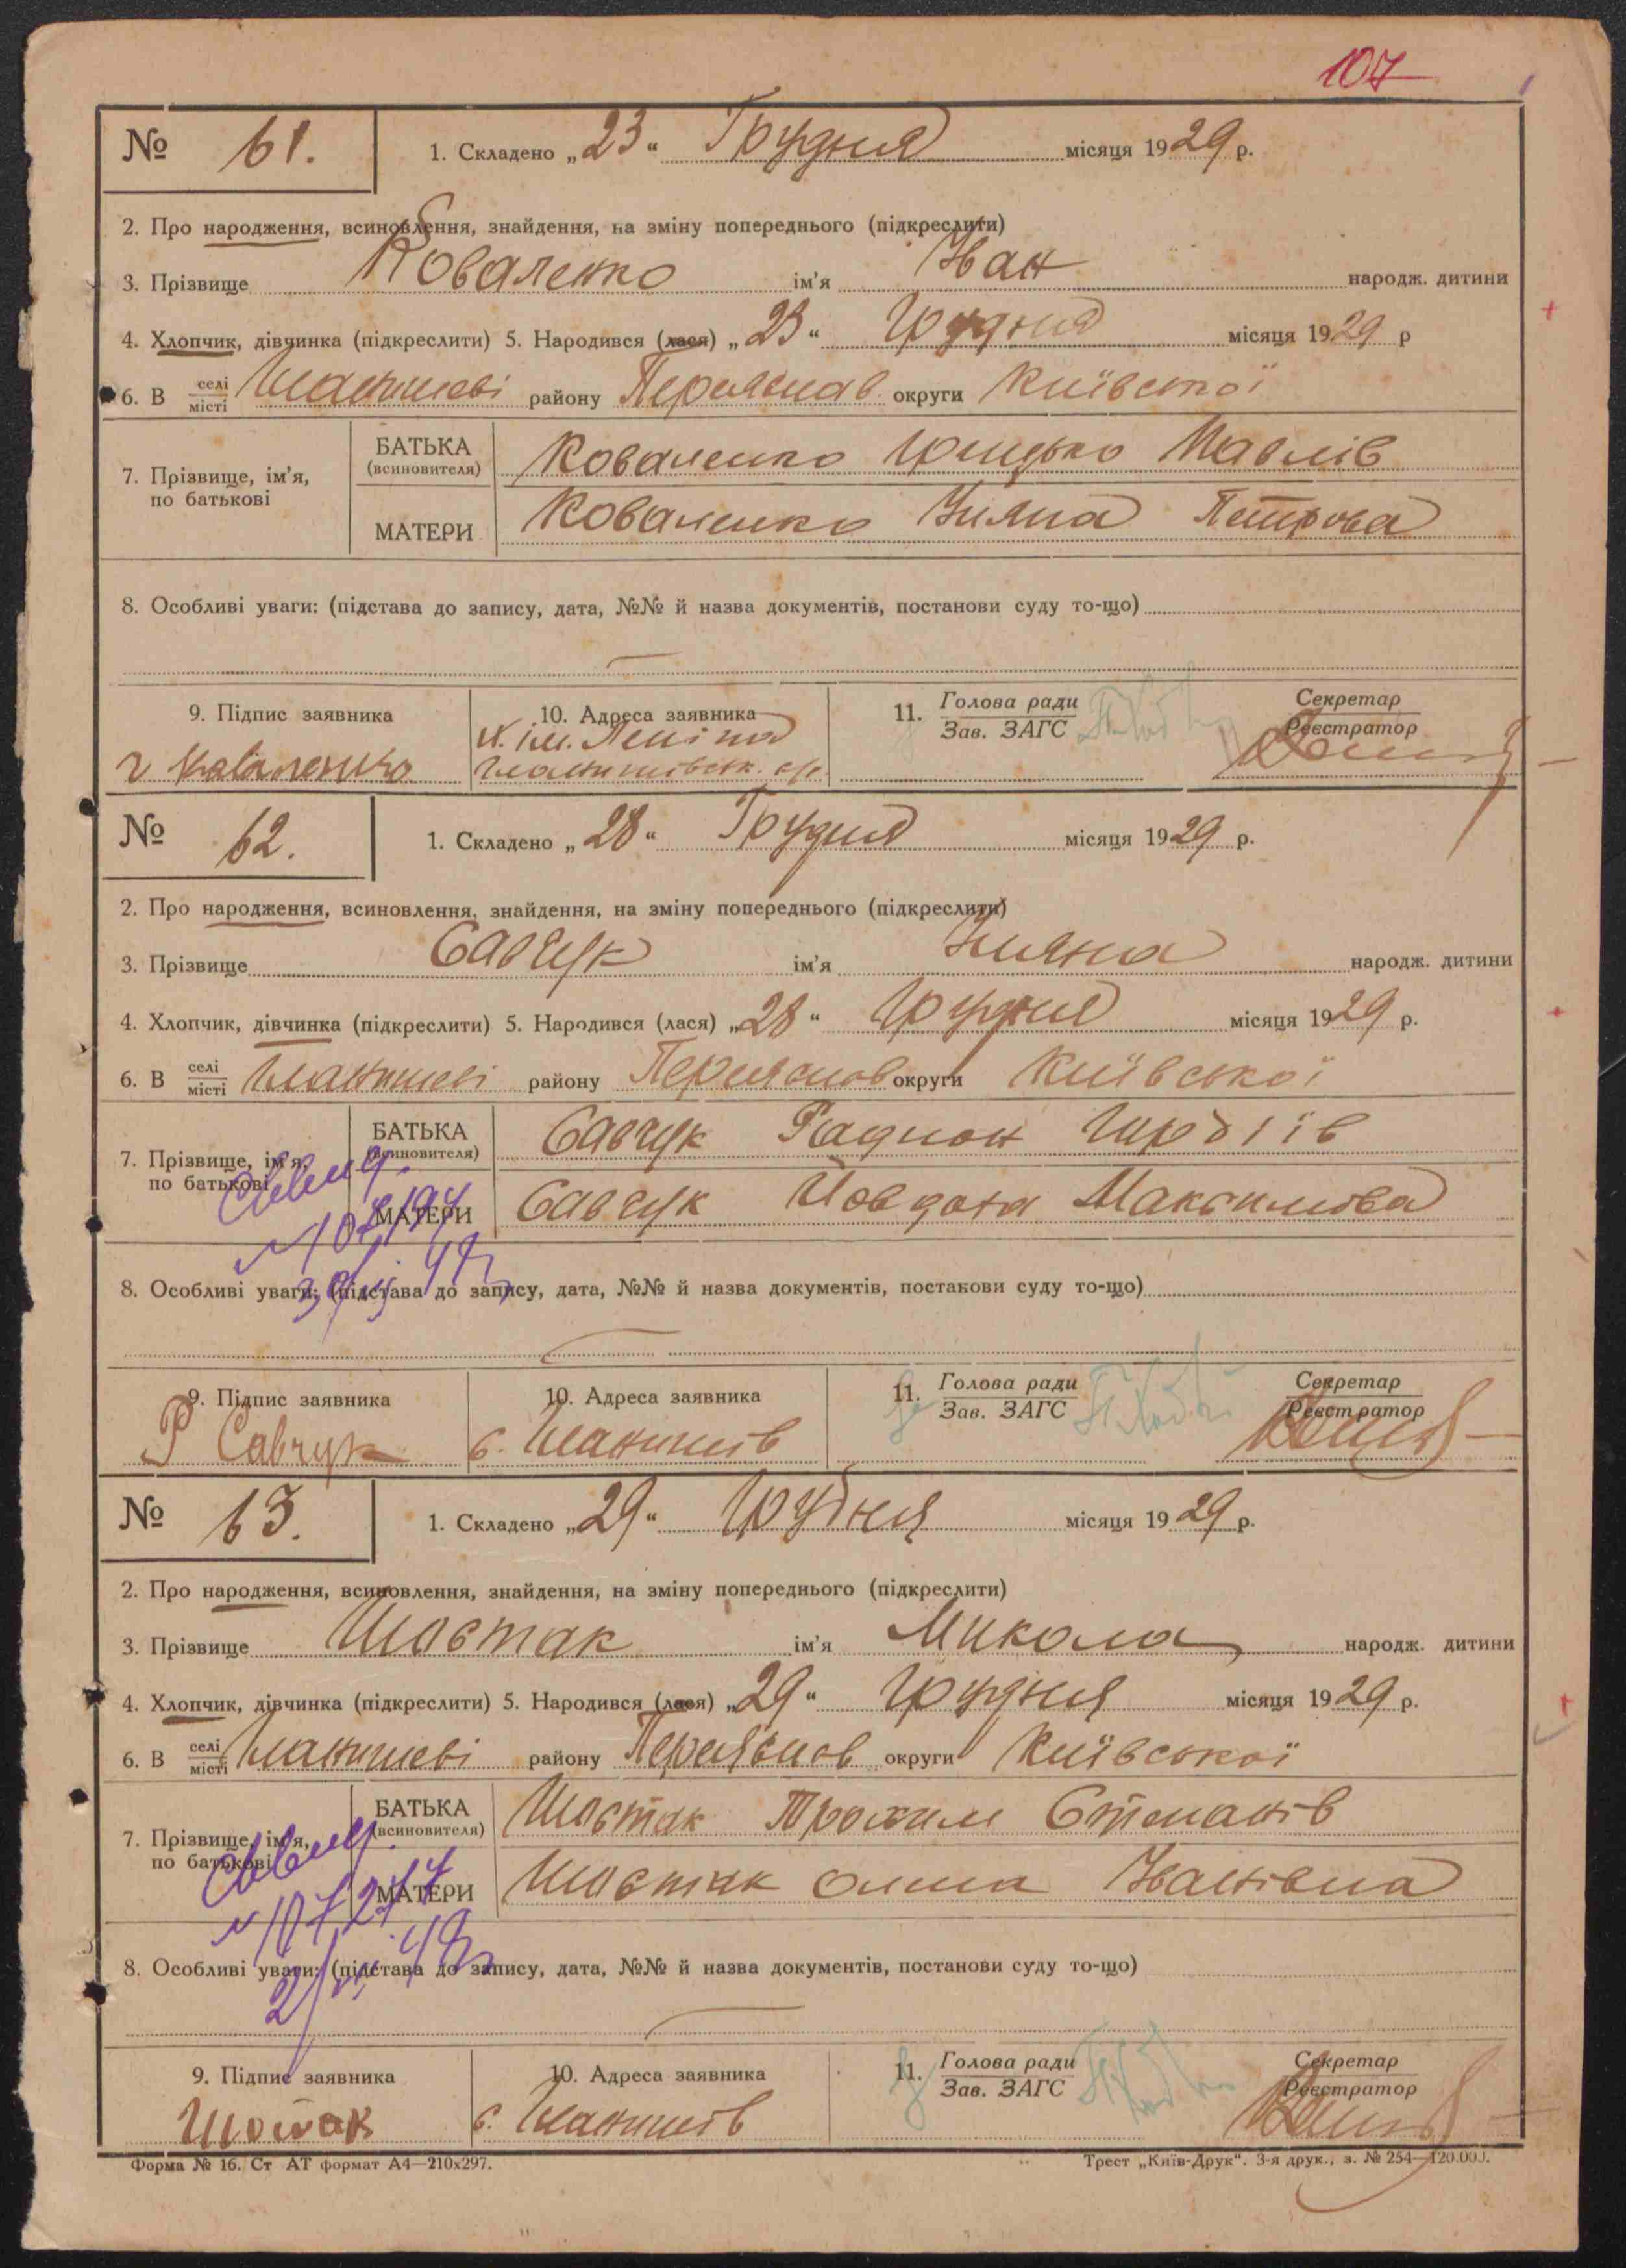 107
№ 61. 1. Складено „23“ Грудня місяця 1929 р.
2. Про народження, всиновлення, знайдення, на зміну попереднього (підкреслити)
3. Прізвище Коваленко ім'я Іван народж. дитини
4. Хлопчик, дівчинка (підкреслити) 5. Народився (лася) „23“ Грудня місяця 1929 р
6. В селі місті району Переяслав. округи Київської
7. Прізвище, ім'я, по батькові
БАТЬКА (всиновителя) Коваленко Грицько Павлів
МАТЕРИ Коваленко Уляна Петрова
8. Особливі уваги: (підстава до запису, дата, №№ й назва документів, постанови суду то-що)
9. Підпис заявника 10. Адреса заявника 11. Голова ради Зав. ЗАГС Секретар Реєстратор
х. ім. Леніна
г Коваленко
№ 62. 1. Складено „28“ Грудня місяця 1929 р.
2. Про народження, всиновлення, знайдення, на зміну попереднього (підкреслити)
3. Прізвище Савчук ім'я Уляна народж. дитини
4. Хлопчик, дівчинка (підкреслити) 5. Народився (лася) „28“ Грудня місяця 1929 р.
6. В селі місті району Переяслав округи Київської
7. Прізвище, ім'я, по батькові
БАТЬКА (всиновителя) Савчук Радион
МАТЕРИ Савчук Йовдоха Максимова
8. Особливі уваги: (підстава до запису, дата, №№ й назва документів, постанови суду то-що)
9. Підпис заявника 10. Адреса заявника 11. Голова ради Зав. ЗАГС Секретар Реєстратор
Р Савчук с.
№ 63. 1. Складено „29“ Грудня місяця 1929 р.
2. Про народження, всиновлення, знайдення, на зміну попереднього (підкреслити)
3. Прізвище Шостак ім'я Микола народж. дитини
4. Хлопчик, дівчинка (підкреслити) 5. Народився (лася) „29“ Грудня місяця 1929 р.
6. В селі місті району Переяслов округи Київської
7. Прізвище, ім'я, по батькові
БАТЬКА (всиновителя) Шостак Трохим Степанів
МАТЕРИ Шостак Олена Іванівна
8. Особливі уваги: (підстава до запису, дата, №№ й назва документів, постанови суду то-що)
9. Підпис заявника 10. Адреса заявника 11. Голова ради Зав. ЗАГС Секретар Реєстратор
Шостак с.
Форма № 16. Ст АТ формат А4—210х297. Трест „Київ-Друк“. 3-я друк., з. № 254—120.000.